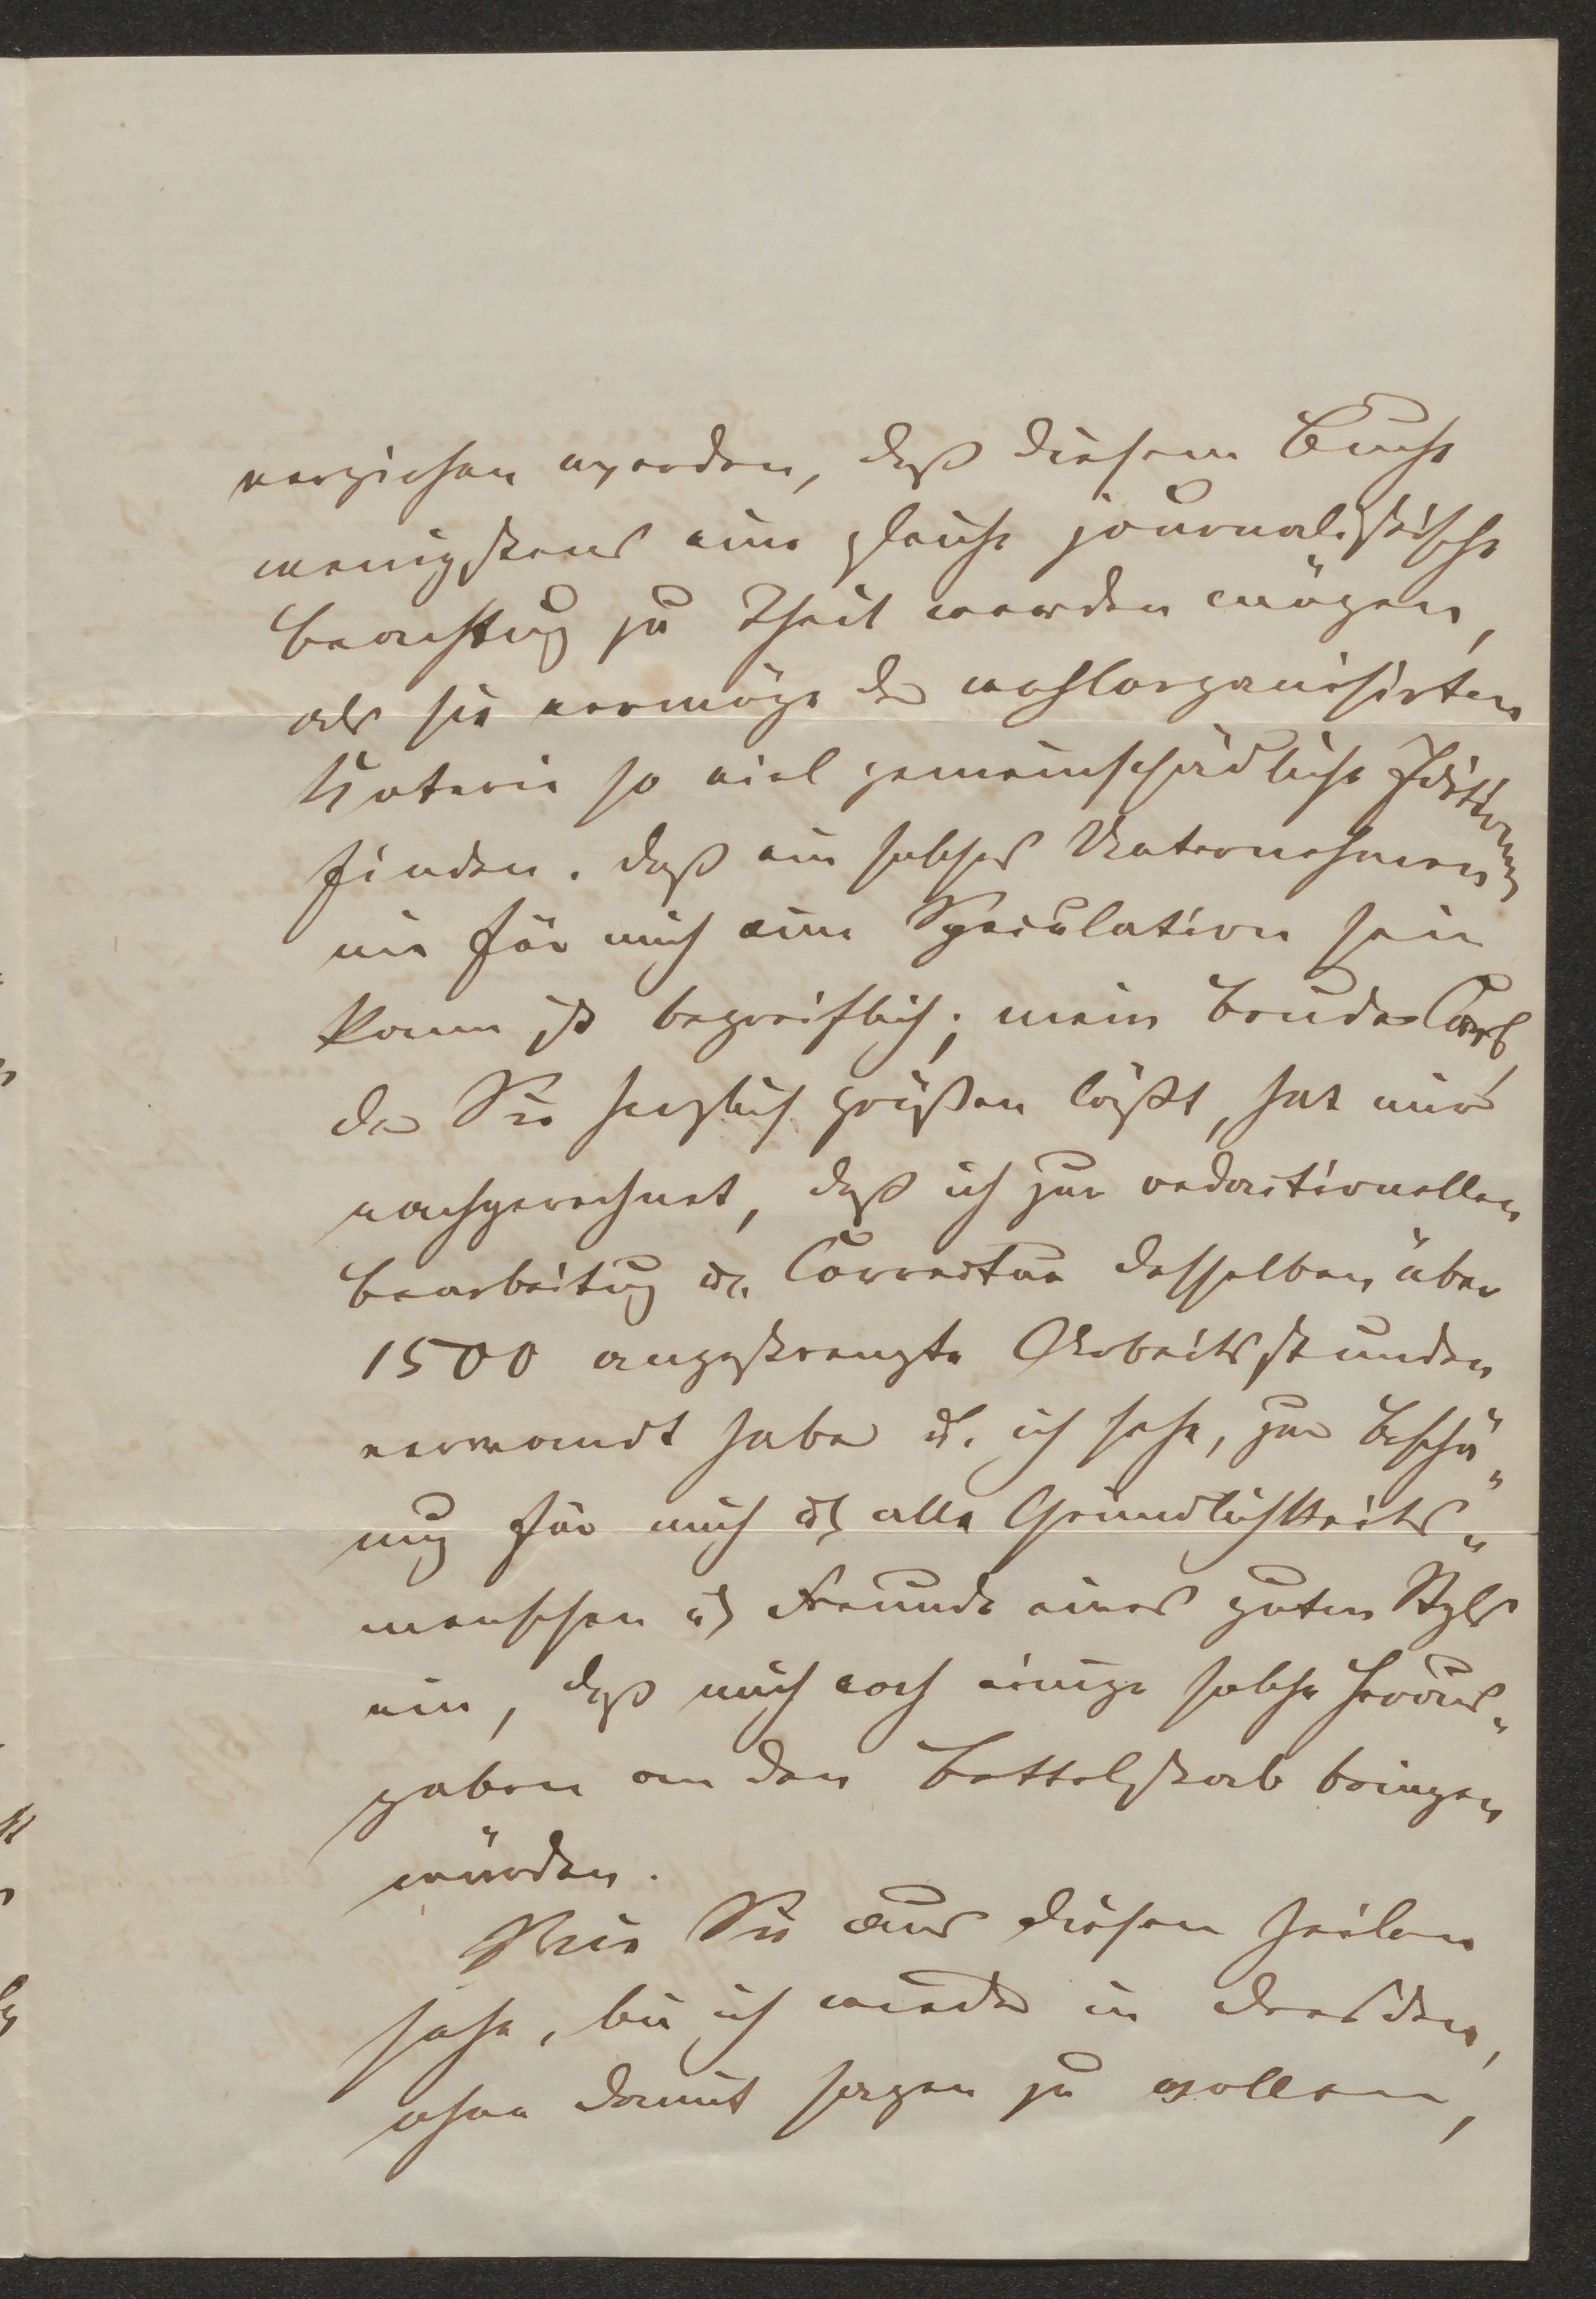 verziehen werden, daß diesem Buche
wenigstens eine gleiche journalistische
Beachtung zu Theil werden mögen,
als sie vermöge der wohlorganisirten
so viel gemeinschädliche Editionen
finden. Daß ein solches Unternehmen
nie für mich eine Speculation sein
kann ist begreiflich; mein Bruder Carl,
der Sie herzlich grüßen läßt, hat mir
nachgerechnet, daß ich zur redactionellen
Bearbeitung u. Correctur desselben über
1500 angestrengte Arbeitsstunden
verwandt habe u. ich sehe, zur Beschä„
mung für mich u. alle Gründlichkeits„
menschen u. Freunde eines guten Styls
ein, daß mich noch einige solche Heraus„
gaben an den Bettelstab bringen
würden.
Wie Sie aus diesen Zeilen
sehen, bin ich wieder in Dresden,
ohne damit sagen zu wollen,